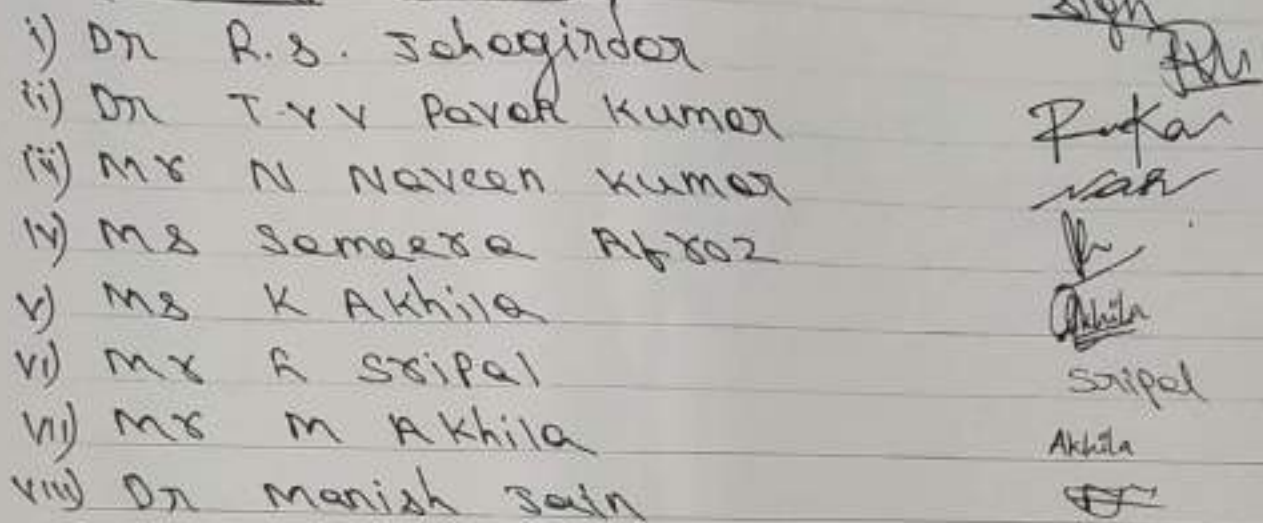 sign
i) Dr R.S. Jahagirdar
ii) Dr T.V V Pavan Kumar
iii) Mr N Naveen Kumar
iv) Ms Sameera Afroz
v) Ms K Akhila Akhila
vi) Mr Sripal Sripal
vii) Mr M Akhila Akhila
viii) Dr Manish Jain